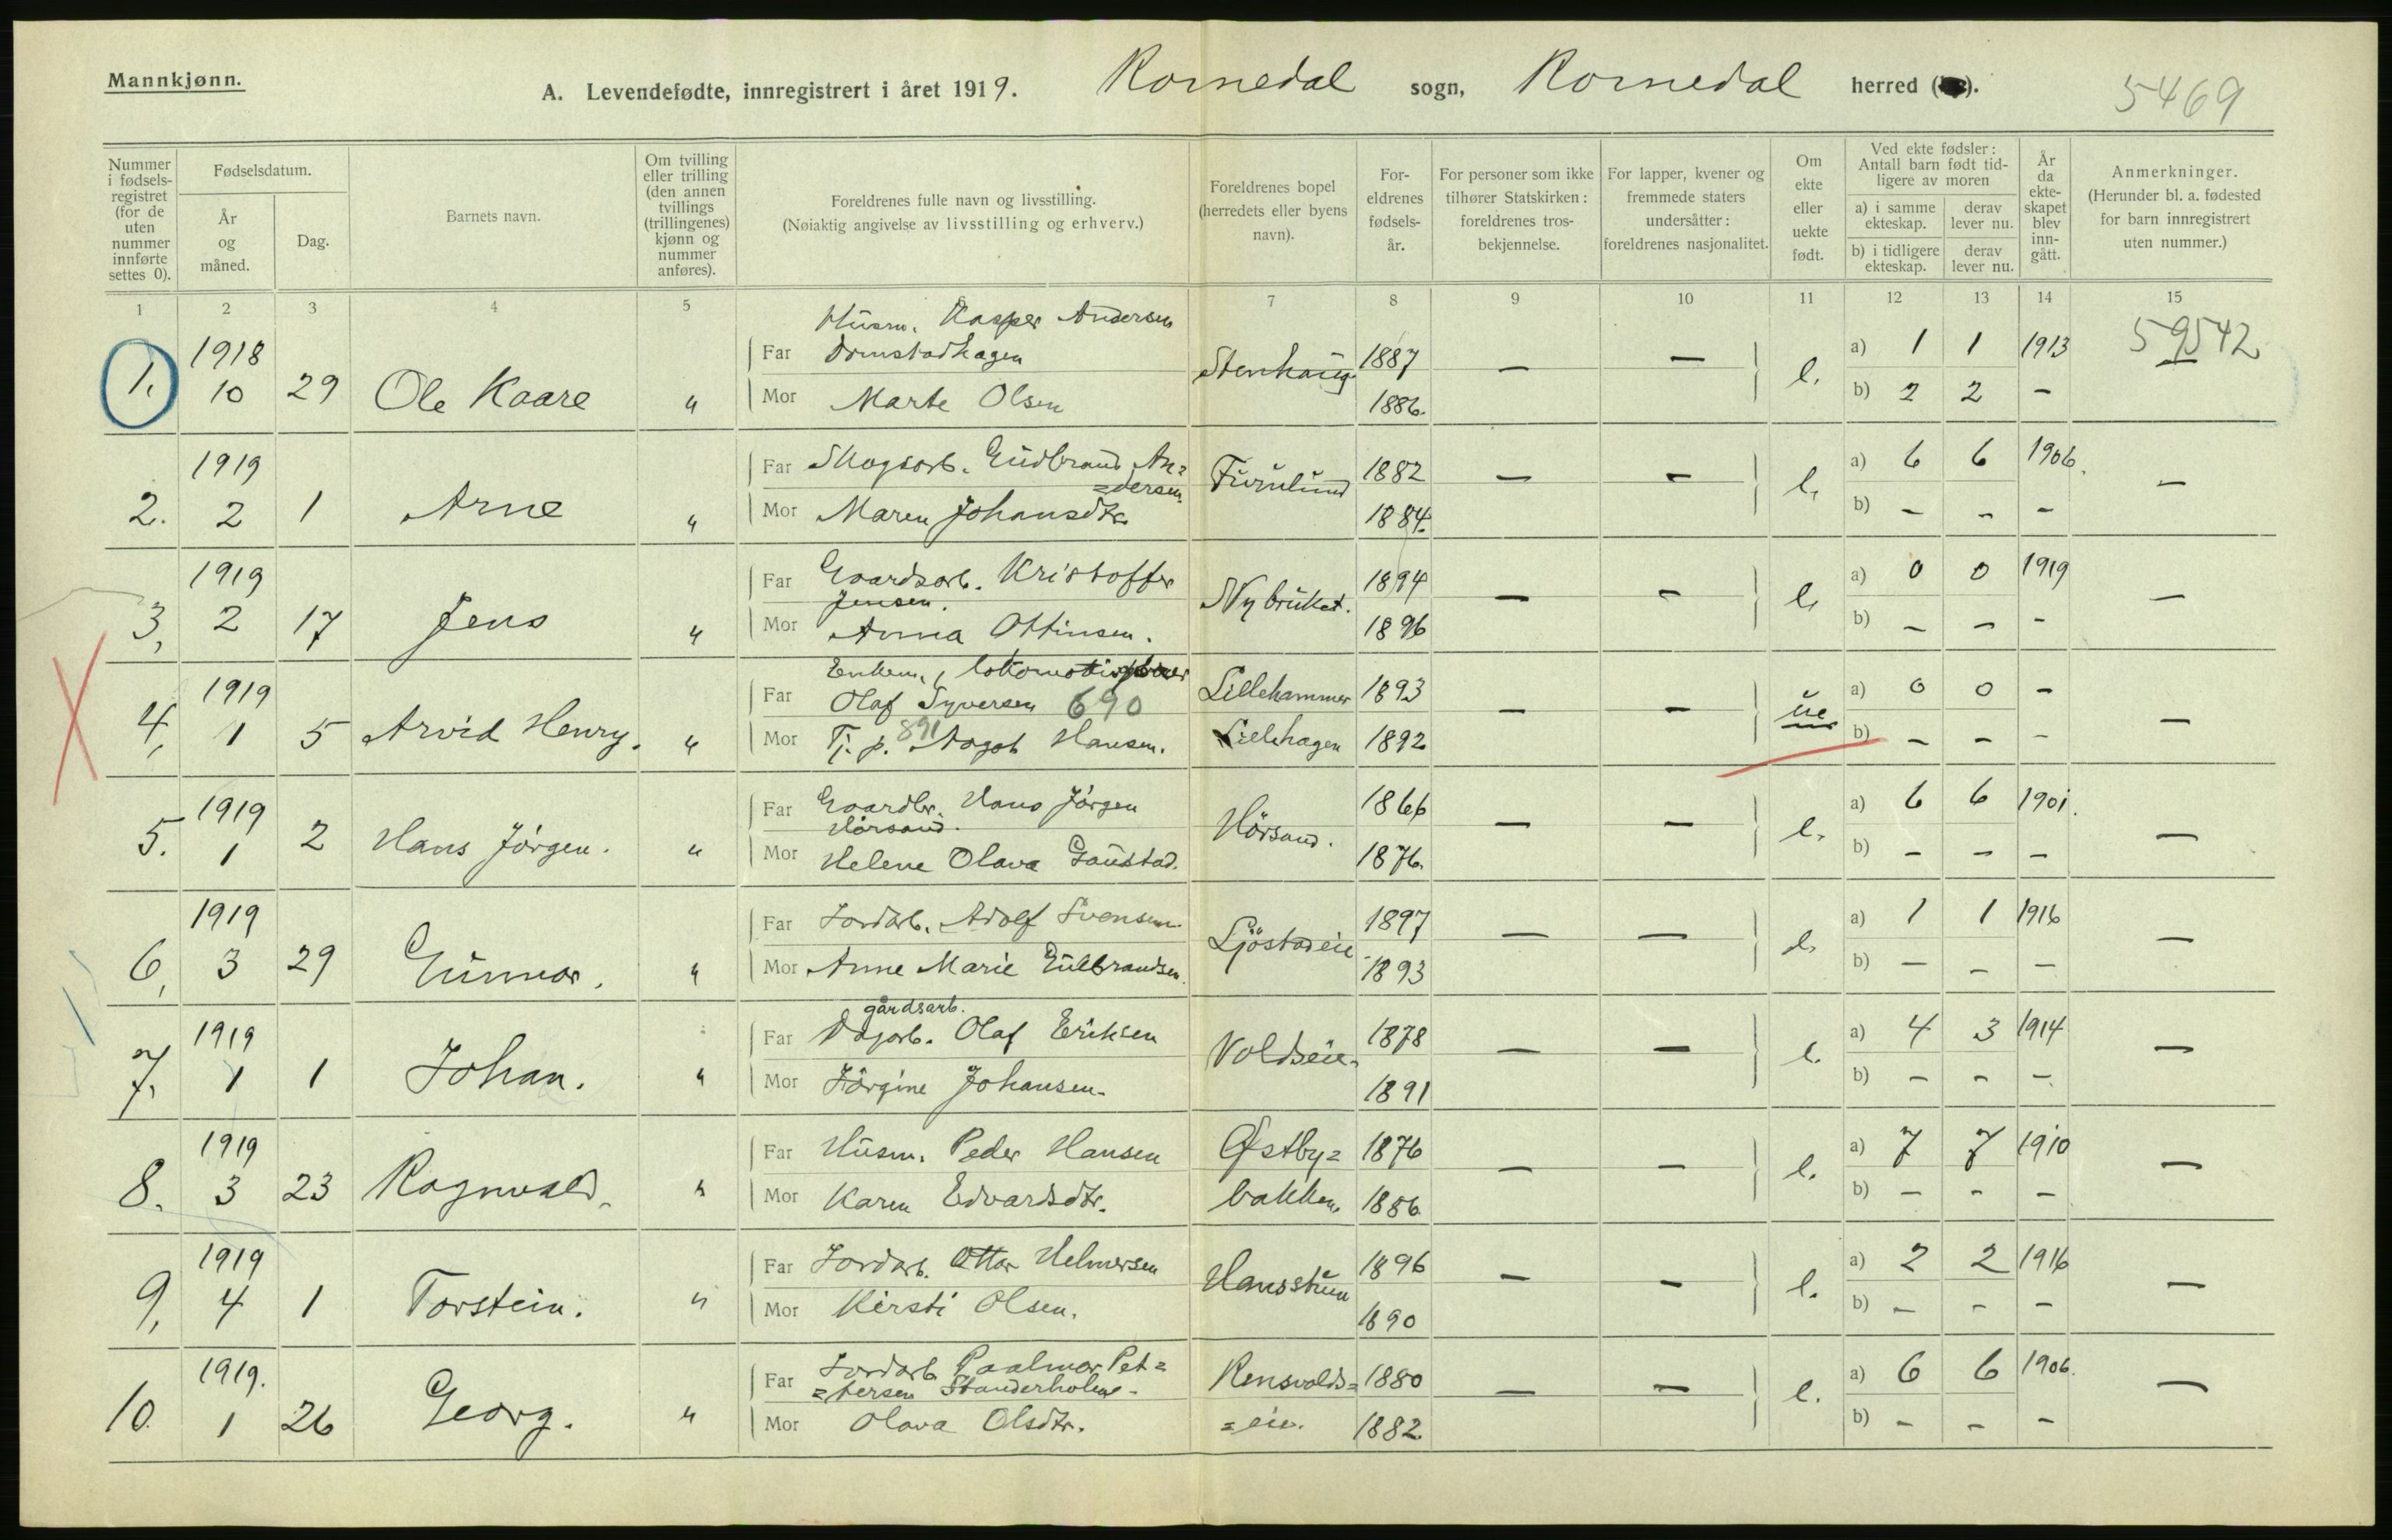 Mannkjønn.
A. Levendefødte, innregistrert i året 1919. Romedal sogn, Romedal herred ( ).
5469
Nummer i fødsels-registret (for de uten nummer innførte settes 0).
Fødselsdatum.
År og måned.
Dag.
Barnets navn.
Om tvilling eller trilling (den annen tvillings (trillingenes) kjønn og nummer anføres).
Foreldrenes fulle navn og livsstilling.
(Nøiaktig angivelse av livsstilling og erhverv.)
Foreldrenes bopel (herredets eller byens navn).
For-eldrenes fødsels-år.
For personer som ikke tilhører Statskirken: foreldrenes tros-bekjennelse.
For lapper, kvener og fremmede staters undersåtter: foreldrenes nasjonalitet.
Om ekte eller uekte født.
Ved ekte fødsler: Antall barn født tid-ligere av moren
a) i samme ekteskap.
derav lever nu.
b) i tidligere ekteskap.
derav lever nu.
År da ekte-skapet blev inn-gått.
Anmerkninger.
(Herunder bl. a. fødested for barn innregistrert uten nummer.)
1 2 3 4 5 7 8 9 10 11 12 13 14 15
Husm. Kasper Andersen
1. 1918 10 29 Ole Kaare " Far Domstadhagen Stenhaug 1887 — — e. a) 1 1 1913 59542
Mor Marte Olsen 1886. b) 2 2 —
2. 1919 2 1 Arne " Far Skogsarb. Gudbrand An=
=dersen Furulund 1882 — — e. a) 6 6 1906. —
Mor Maren Johansdtr. 1884. b) — — —
3, 1919 2 17 Jens " Far Gaardsarb. Kristoffer
Jensen. Nybruket. 1894 — — e. a) 0 0 1919 —
Mor Anna Ottinsen. 1896 b) — — —
4, 1919 1 5 Arvid Henry. " Enkem.,
Far Olaf Syversen 690 Lillehammer 1893 — — ue a) 0 0 — —
Mor Tj. p. 891 Aagot Hansen. Lillehagen 1892 b) — — —
5. 1919 1 2 Hans Jörgen. " Far Gaardbr. Hans Jörgen
Hörsand. Hörsand. 1866 — — e. a) 6 6 1901. —
Mor Helene Olava Gaustad. 1876. b) — — —
6, 1919 3 29 Gunnar. " Far Jordarb. Adolf Svensen Ljöstadeie 1897 — — e. a) 1 1 1916 —
Mor Anne Marie Gulbrandsen. 1893 b) — — —
gårdsarb.
7, 1919 1 1 Johan. " Far Dagarb. Olaf Eriksen Voldseie. 1878 — — e. a) 4 3 1914 —
Mor Jörgine Johansen. 1891 b) — — —
8. 1919 3 23 Ragnvald. " Far Husm. Peder Hansen Østby= 1876 — — e. a) 7 7 1910 —
Mor Karen Edvardsdtr. bakken. 1886. b) — — —
9, 1919 4 1 Torstein. " Far Jordarb. Ottar Helmersen Hansstuen 1896 — — e. a) 2 2 1916 —
Mor Kirsti Olsen. 1890 b) — — —
10. 1919. 1 26 Georg. " Far Jordarb. Paalmar Pet=
=tersen Standerholen. Rensvolds= 1880 — — e. a) 6 6 1906. —
Mor Olava Olsdtr. =eie. 1882. b) — — —